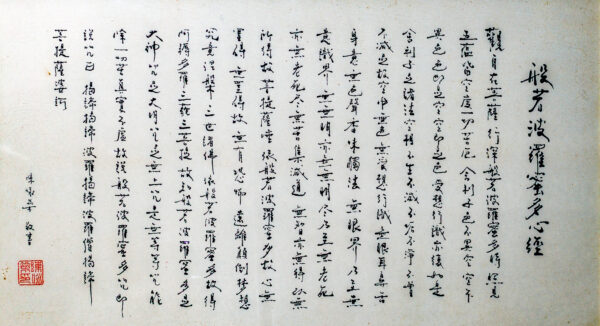 般若波羅蜜多心經
觀自在菩薩行深般若波羅蜜多時照見
五蘊皆空度一切苦厄舍利子色不異空空不
異色色即是空空即是色受想行識亦復如是
舍利子是諸法空相不生不滅不垢不淨不增
不減是故空中無色無受想行識無眼耳鼻舌
身意無色聲香味觸法無眼界乃至無
意識界無無明亦無無明盡乃至無老死
亦無老死盡無苦集滅道無智亦無得以無
所得故菩提薩埵依般若波羅蜜多故心無
罣礙無罣礙故無有恐怖遠離顛倒夢想
究竟涅槃三世諸佛依般若波羅蜜多故得
阿耨多羅三藐三菩提故知般若波羅蜜多是
大神咒是大明咒是無上咒是無等等咒能
除一切苦真實不虛故說般若波羅蜜多咒即
說咒曰揭諦揭諦波羅揭諦波羅僧揭諦
菩提薩婆訶
敬書